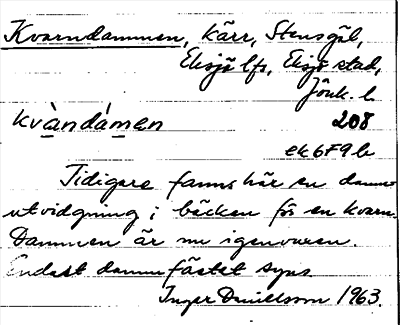 Kvarndammen, kärr, Stensgöl,
Eksjö lfs, Eksjö stad,
Jönk. l.
kvàndámen 208
ek6F9b
Tidigare fanns här en damm-
utvidgning i bäcken för en kvarn.
Dammen är nu igenvuxen.
Endast dammfästet syns.
Inger Danielsson 1963.